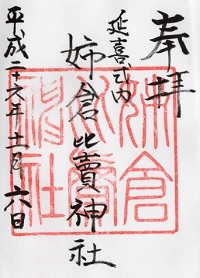 奉拝
延喜式内
姉倉比賣神社
平成二十六年十一月六日
姉倉
比賣
神社